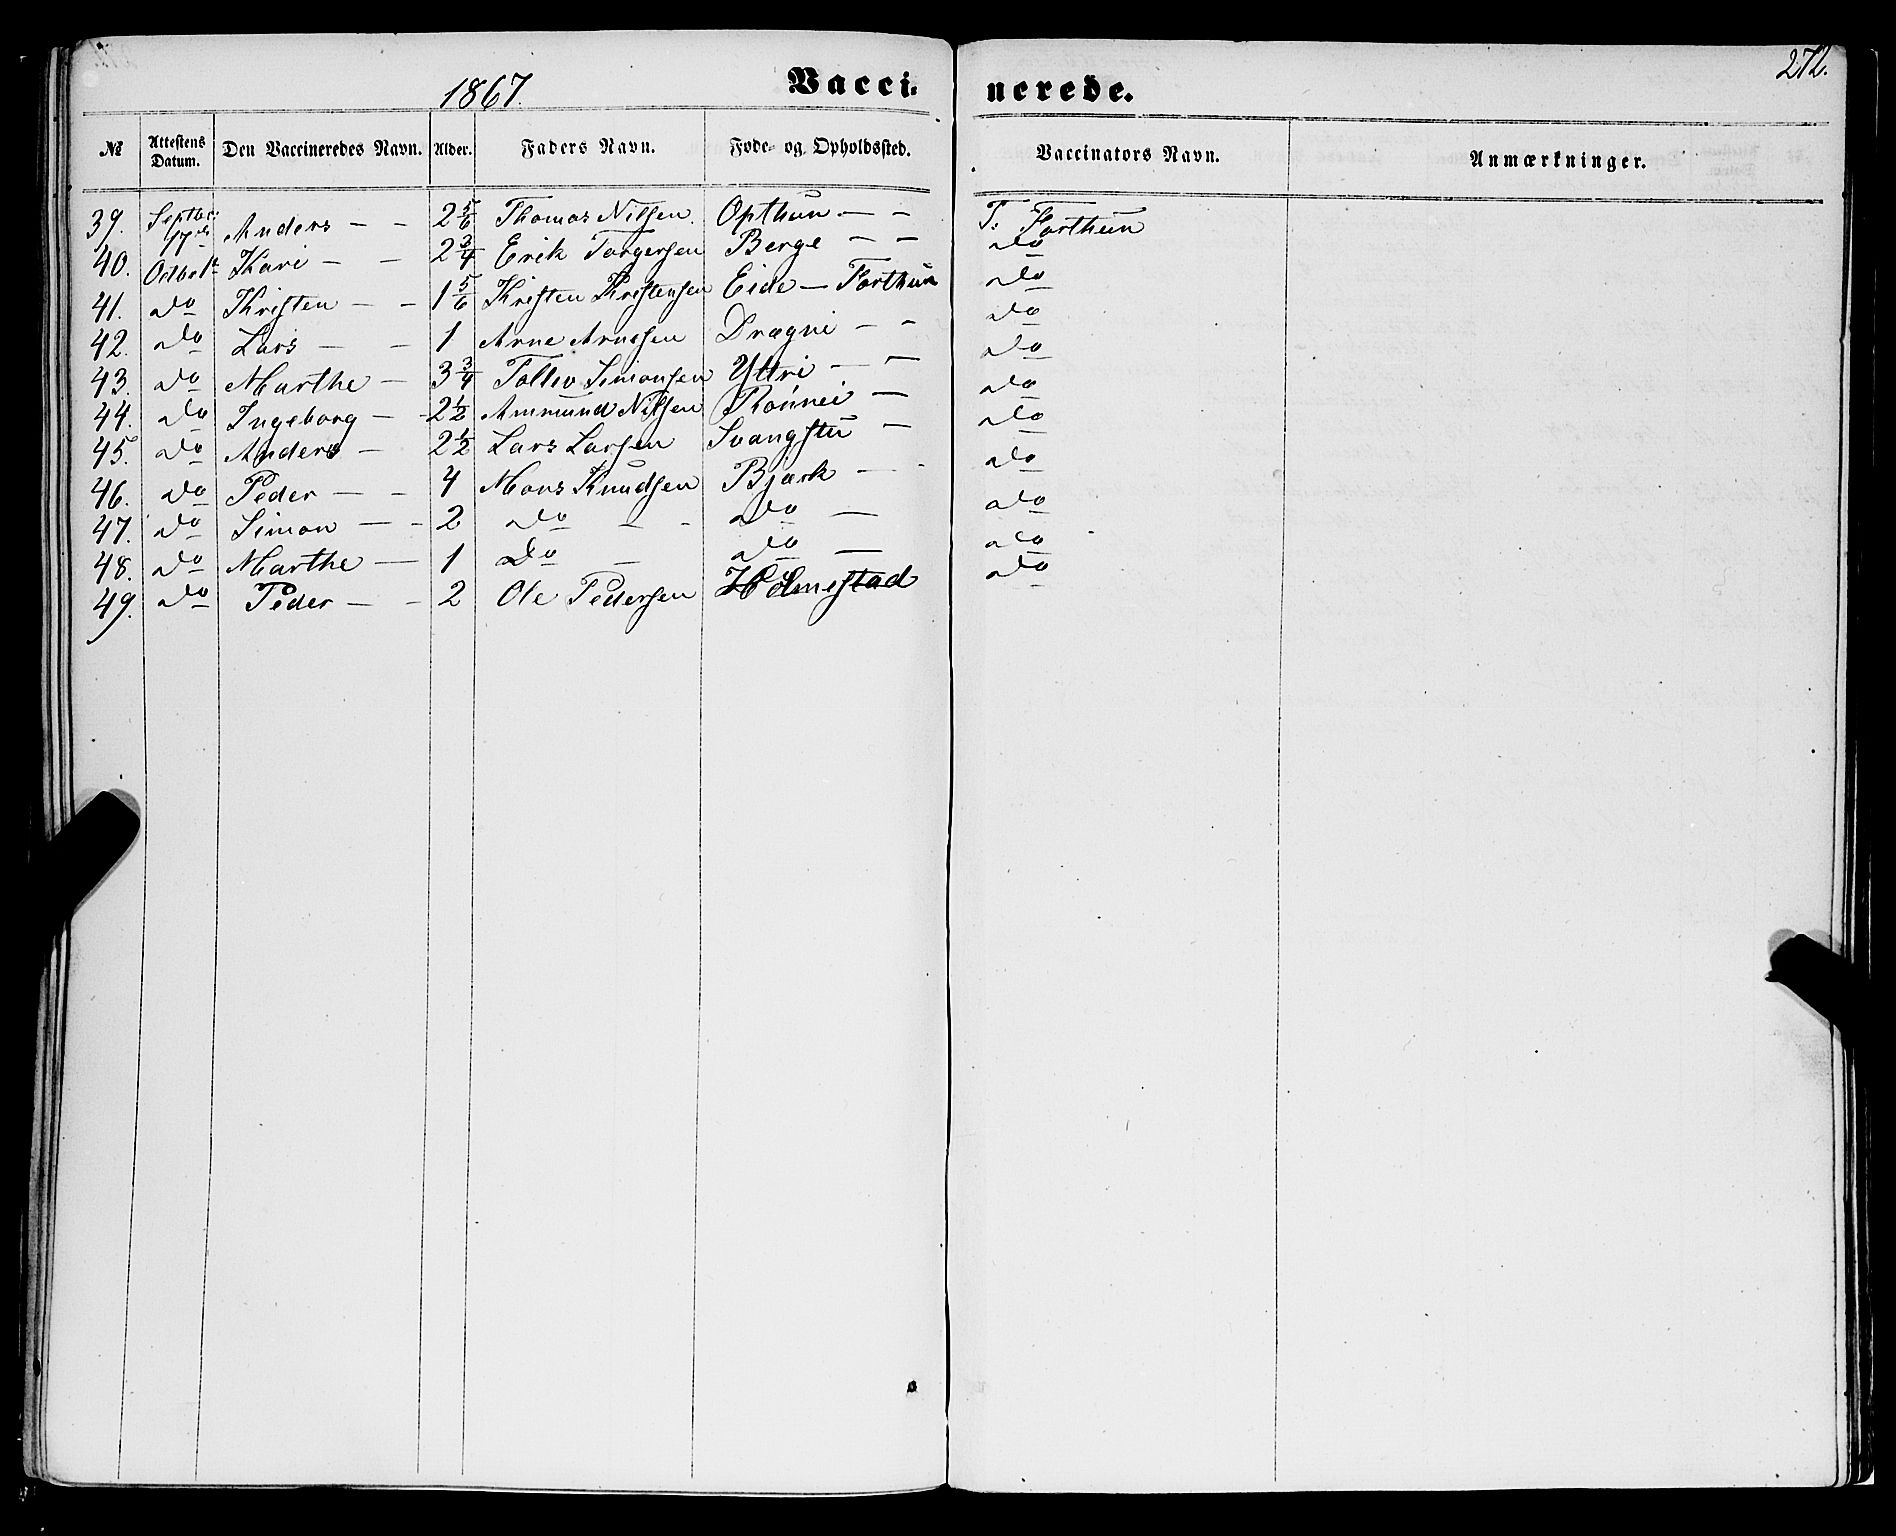 272.
1867. Vacci- nerede.
№ Attestens Datum. Den Vaccineredes Navn. Alder. Faders Navn. Føde- og Opholdssted. Vaccinators Navn. Anmærkninger.
39. Septbr: 17de Anders — — 2 5/6 Thomas Nilsen Opthun — — T. Forthun
40. Octbr 1ste Kari — — 2 3/4 Erik Torgersen Berge — — do
41. do Kristen — — 1 5/6 Kristen Kristensen Eide — Forthun do
42. do Lars — — 1 Arne Arnesen Drægni — — do
43. do Marthe — 3 3/4 Tollev Simonsen Yttri — — do
44. do Ingeborg — - 2 1/2 Ammund Nilsen Rønnei — do
45. do Anders — 2 1/2 Lars Larsen Svangstu — do
46. do Peder — - 4 Mons Knudsen Bjørk — - do
47. do Simon — - 2 do — - do — do
48. do Marthe — 1 Do — do — do
49. do Peder — - 2 Ole Pedersen Holmestad do